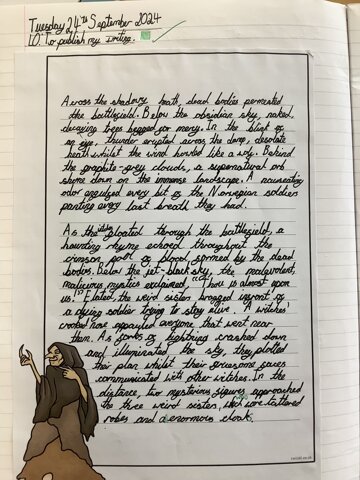 Tuesday 24th September 2024
LO: To publish my writing.
Across the shadowy heath, dead bodies permented
the battlefield. Below the obsidian sky, naked,
decaying trees begged for mercy. In the blink of
an eye, thunder erupted across the damp, desolate
heath whilst the wind howled like a wolf. Behind
the graphite-grey clouds, a supernatural orb
shone down on the immense landscape. A nauseating
odor engulfed every bit of the Norwegian soldiers
panting every last breath they had.
As the gloated through the battlefield, a
haunting rhyme echoed throughout the
crimson pool of blood, formed by the dead
bodies. Below the jet-black sky, the malevolent,
malicious mystics exclaimed, "Thou is almost upon
us!" Elated, the weird sister bragged infront of
a dying soldier trying to stay alive. A witches'
crooked nose repulsed everyone that went near
them. As forks of lightning crashed down
and illuminated the sky, they plotted
their plan whilst their gruesome faces
communicated with other witches. In the
distance, two mysterious figures approached
the three weird sisters, which wore tattered
robes and enormous cloak.
twinkl.co.uk